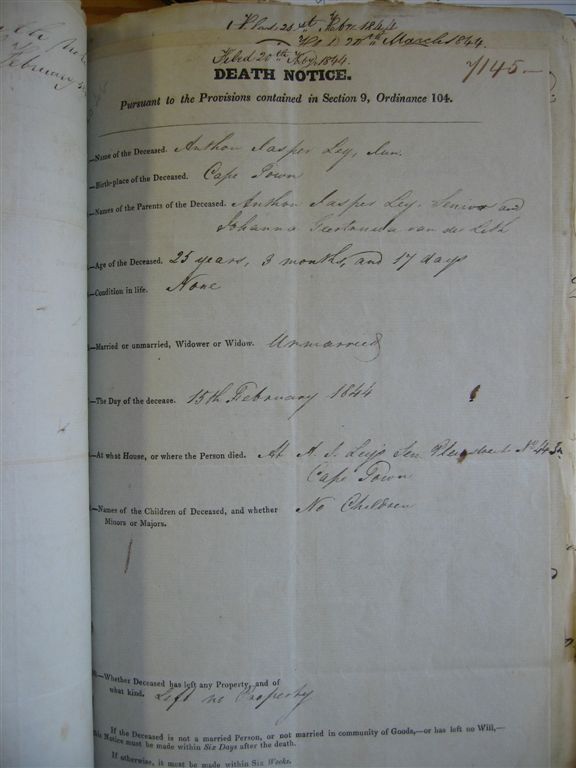 Filed 20th Feby. 1844
7145 —
DEATH NOTICE.
Pursuant to the Provisions contained in Section 9, Ordinance 104.
—Name of the Deceased. Anthon Jasper Ley, Jun.
—Birth-place of the Deceased. Cape Town
—Names of the Parents of the Deceased. Anthon Jasper Ley, Senior and
Johanna van der Leth
—Age of the Deceased. 25 years, 3 months, and 17 days
—Condition in life. None
—Married or unmarried, Widower or Widow. Unmarried
—The Day of the decease. 15th February 1844
—At what House, or where the Person died. At A. J. Leys Sen No 4
Cape Town
—Names of the Children of Deceased, and whether No Children
Minors or Majors.
—Whether Deceased has left any Property, and of
what kind. Left no Property
If the Deceased is not a married Person, or not married in community of Goods,—or has left no Will,—
this Notice must be made within Six Days after the death.
If otherwise, it must be made within Six Weeks.